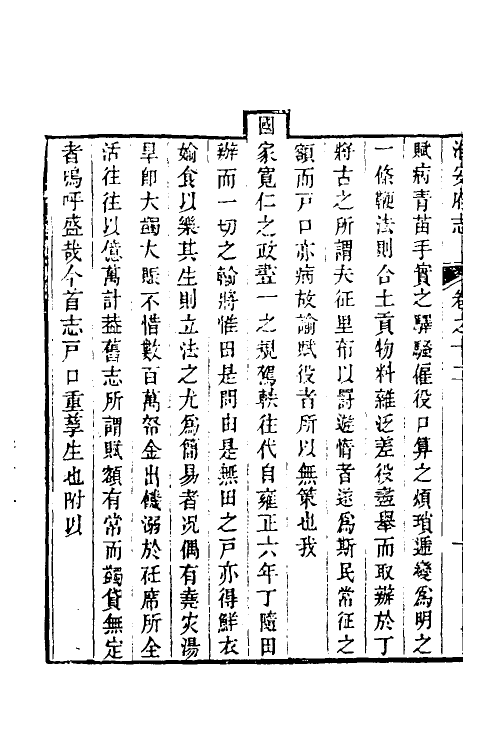 淮安府志 卷之十二
賦病青苗手實之驛騷傜役口算之煩瑣遞變爲明之
一條鞭法則合土貢物料雜泛差役盡舉而取辦於丁
將古之所謂夫征里布以罰遊惰者遂爲斯民常征之
額而戸口亦病故論賦役者所以無策也我
國家寬仁之政畫一之規駕軼往代自雍正六年丁隨田
辦而一切之輸將惟田是問由是無田之戸亦得鮮衣
媮食以樂其生則立法之尤爲簡易者况偶有堯灾湯
旱卽大蠲大賑不惜數百萬帑金出饑溺於祍席所全
活往往以億萬計葢舊志所謂賦額有常而蠲貸無定
者嗚呼盛哉今首志戸口重孳生也附以